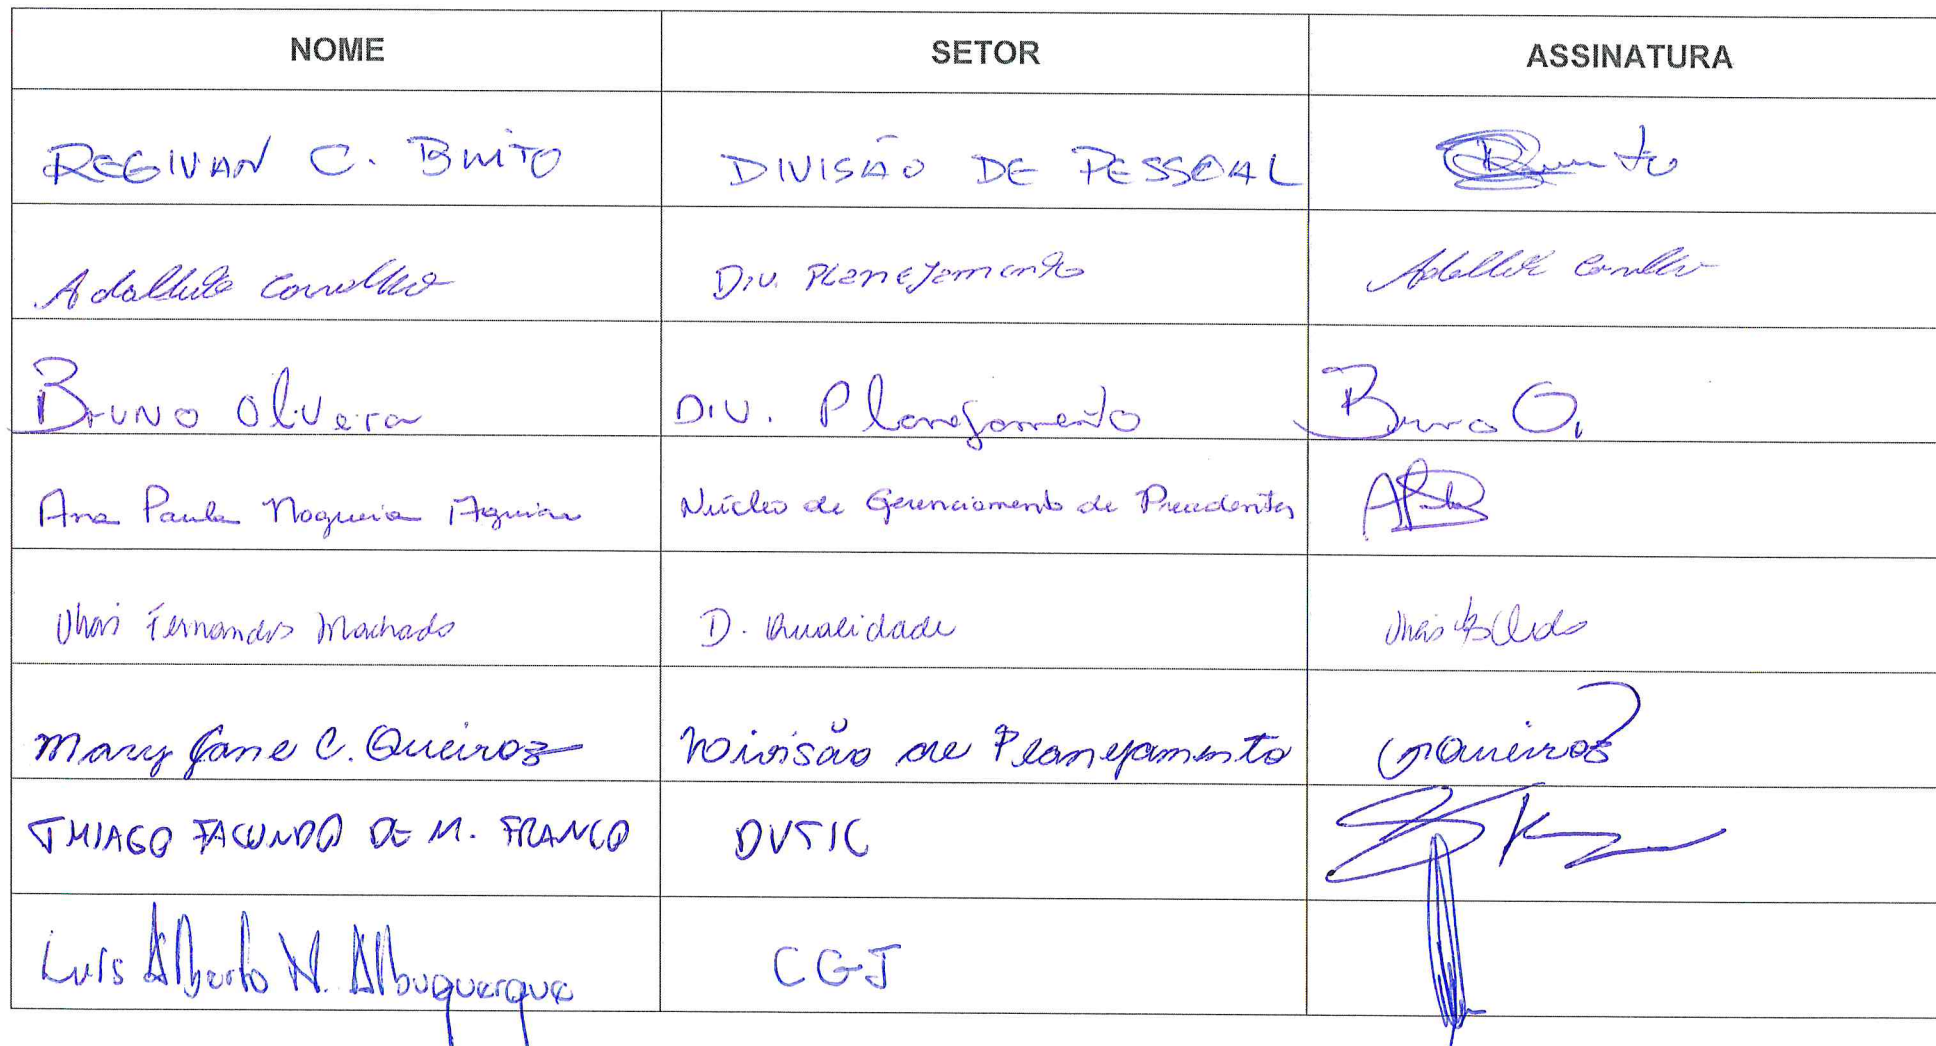 NOME SETOR ASSINATURA
REGIVAN C. BRITO DIVISÃO DE PESSOAL
Carvalho Div. Planejamento
Bruno Oliveira DIV. Planejamento Bruno O.
Ana Paula Nogueira Aguiar Núcleo de Gerenciamento de Precedentes
Fernandes Machado D. Qualidade
Mary Jane C. Queiroz Divisão de Planejamento Queiroz
THIAGO FACUNDO DE M. FRANCO DVTIC
Luis Alberto N. Albuquerque CGJ